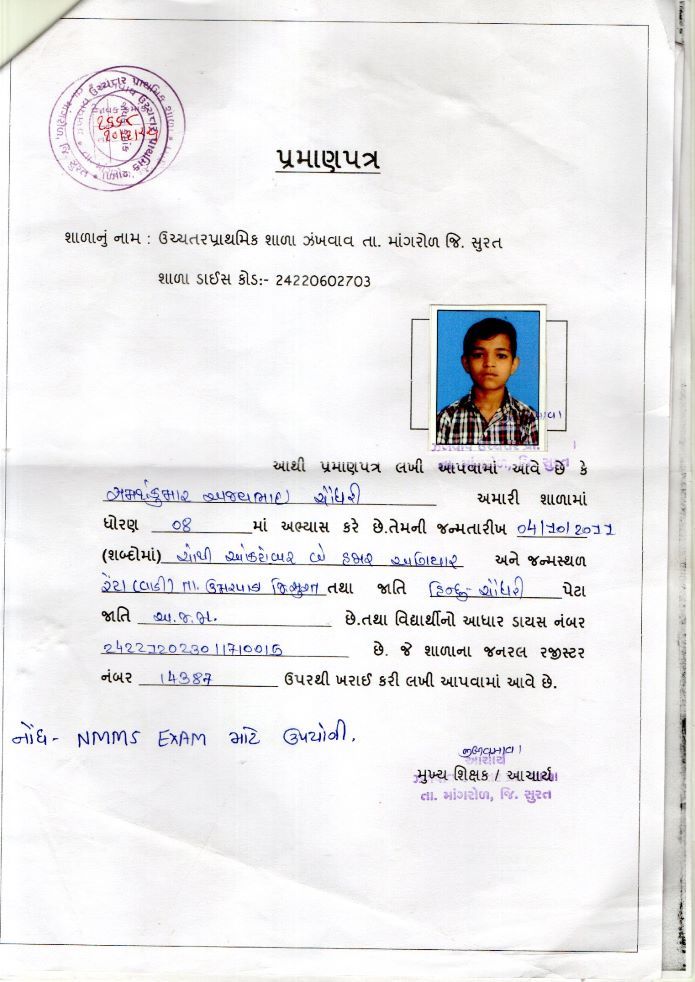 પ્રમાણપત્ર
શાળાનું નામ : ઉચ્ચતરપ્રાથમિક શાળા ઝંખવાવ તા. માંગરોળ જિ. સુરત
શાળા ડાઈસ કોડ:- 24220602703
આથી પ્રમાણપત્ર લખી આપવામાં આવે છે કે
અજયભાઈ ચૌધરી અમારી શાળામાં
ધોરણ 08 માં અભ્યાસ કરે છે.તેમની જન્મતારીખ 04/10/2011
(શબ્દોમાં) ચોથી ઓકટોબર બે હજાર અગિયાર અને જન્મસ્થળ
તા. ઉમરપાડા જિ.સુરત તથા જાતિ હિન્દુ-ચૌધરી પેટા
જાતિ અ.જ.જા. છે.તથા વિદ્યાર્થીનો આધાર ડાયસ નંબર
છે. જે શાળાના જનરલ રજીસ્ટર
નંબર 14387 ઉપરથી ખરાઈ કરી લખી આપવામાં આવે છે.
નોંધ- NMMS EXAM માટે ઉપયોગી.
આચાર્ય
મુખ્ય શિક્ષક / આચાર્ય
તા. માંગરોળ, જિ. સુરત